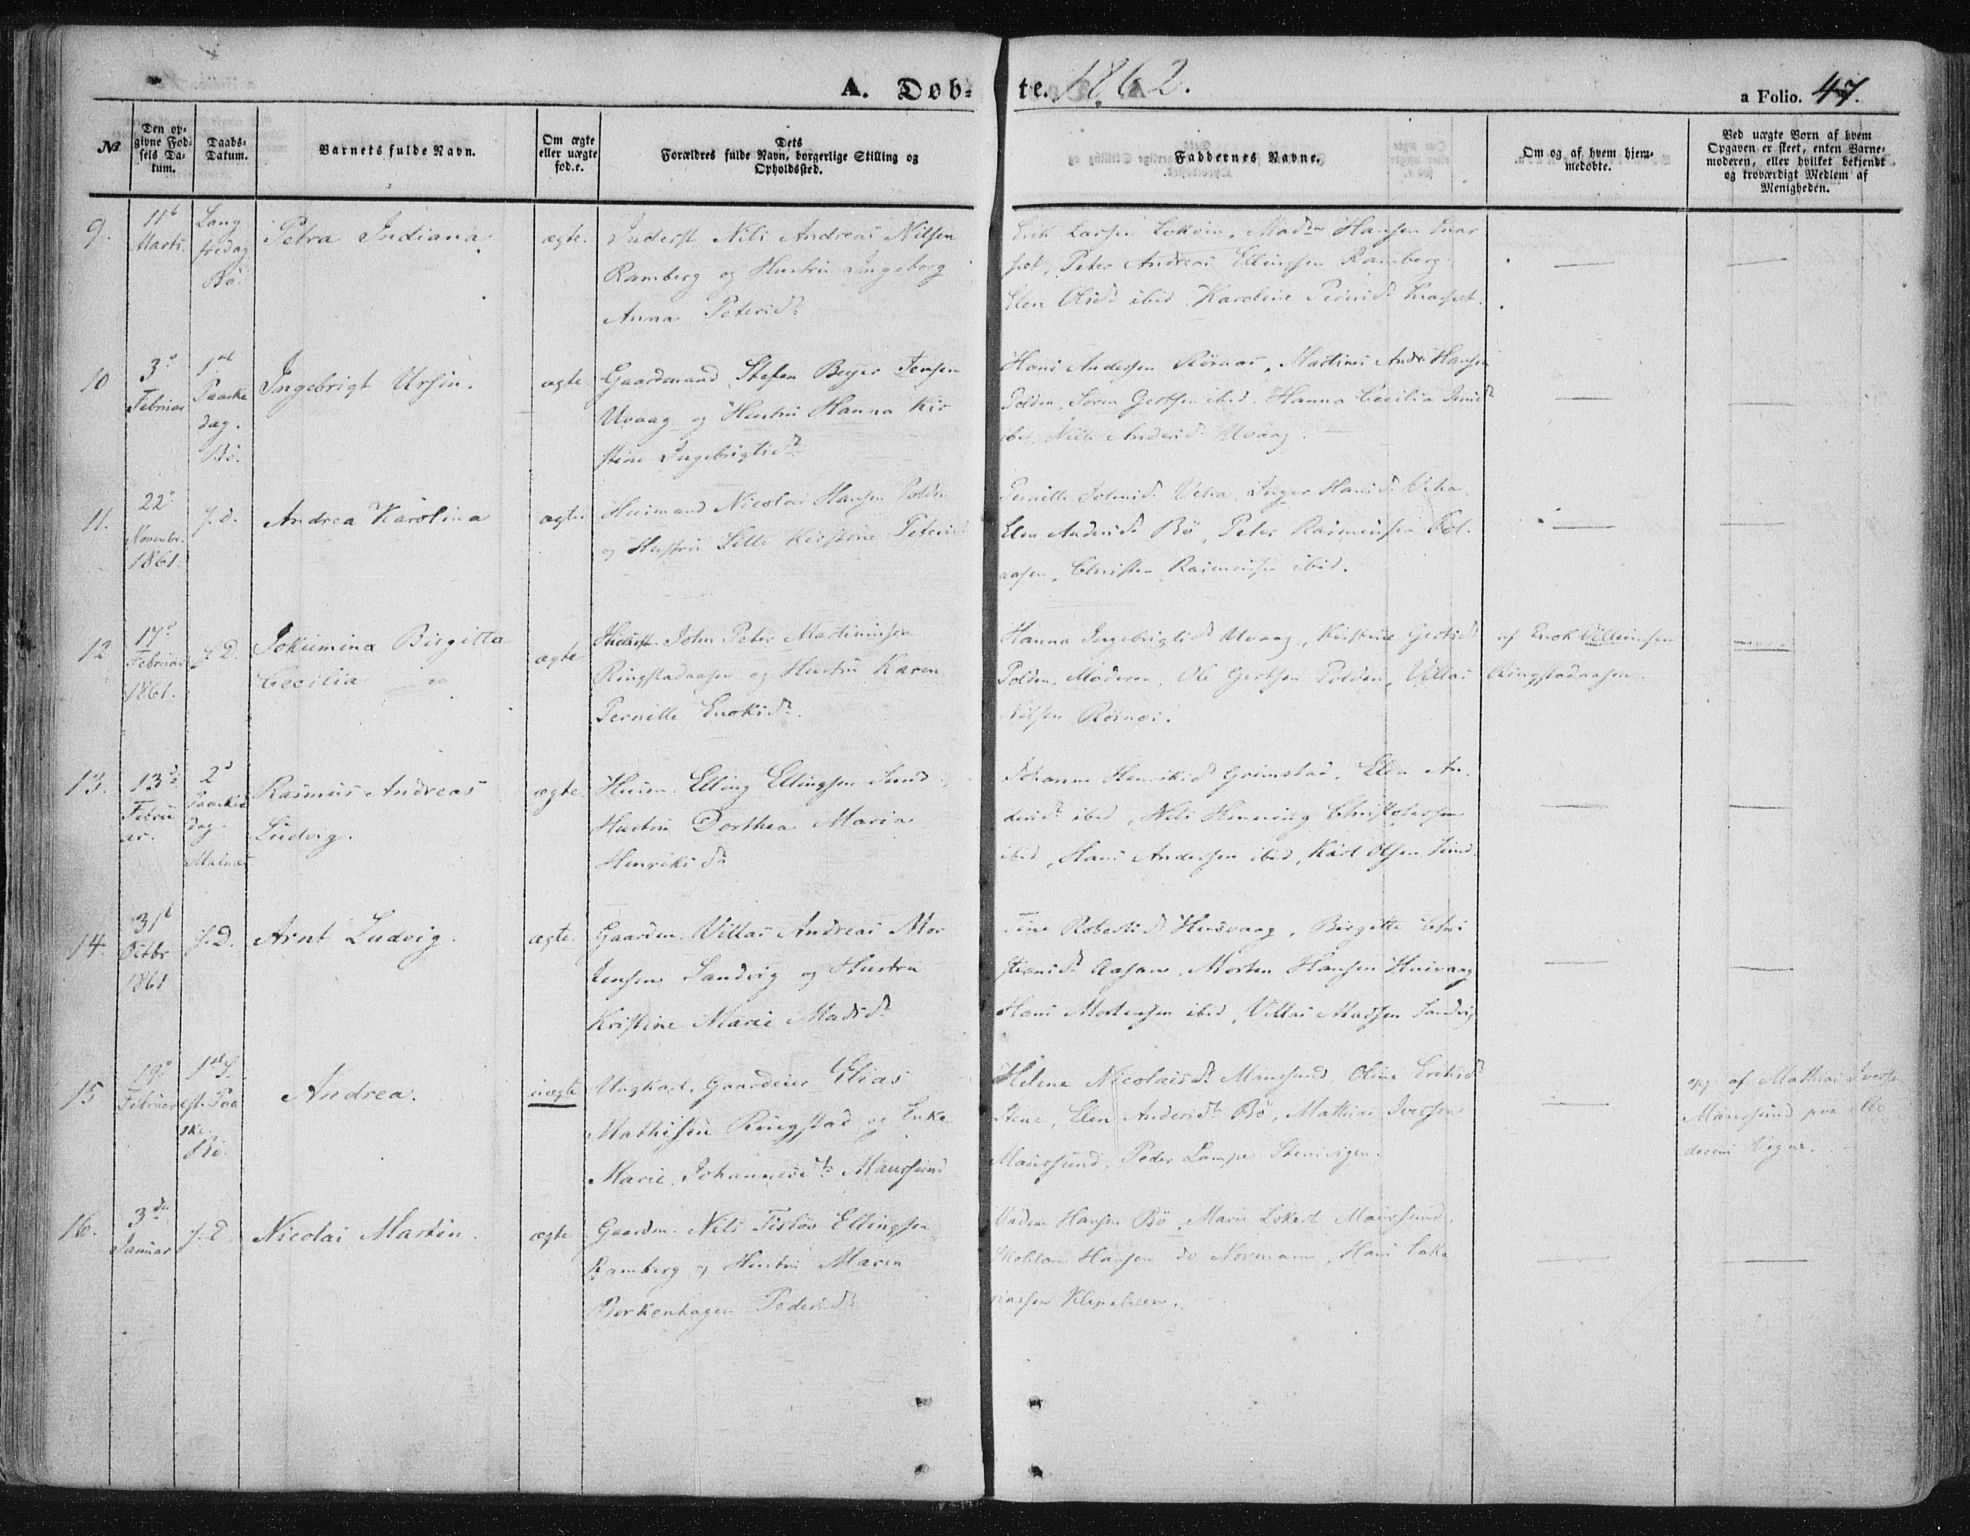 A. Døb-te. 1862.
a Folio. 47.
№
Den op-
givne Fød-
sels Da-
tum.
Daabs-
Datum.
Barnets fulde Navn.
Om ægte
eller uægte
fød.e.
Dets
Forældres fulde Navn, borgerlige Stilling og
Opholdssted.
Faddernes Navne.
Om og af hvem hjem-
medøbte.
Ved uægte Børn af hvem
Opgaven er skeet, enten Barne-
moderen, eller hvilket bekjendt
og troværdigt Medlem af
Menigheden.
9.
11te
Marts
Lang
fredag
Bö.
Petra Indiana
ægte.
Inderst Nils Andreas Nilsen
Ramberg og Hustru Ingeborg
Anna Petersdr
Erik Larsen, Madm Hansen
Peter Andreas Ellingsen Ramberg
Elen Olsdr ibid Karoline
10
3d
Februar
1ste
Paaske
dag.
Bö.
Ingebrigt Ursin.
ægte
Gaardmand Stefen Beyer Jensen
Uvaag og Hustru Hanna Kir
stine Ingebrigtsdr
Hans Andersen Rörnæs, Martinus Andr: Hansen
Polden, Sören Gertsen ibid, Hanna Cecilia
ibid, Andersdr Uvaag.
11.
22d
Novembr.
1861.
f. D.
Andrea Karolina
ægte.
Huusmand Nicolai Hansen Polden
og Hustru Kirstine Petersdr
Pernille Veha, Inger Hansdr Veha
Elen Andersdr Bö, Peter Rasmussen
aasen, Christen Rasmussen ibid.
12
17d
Februar
1861.
f. D.
Jokumina Birgitta
Cecilia
ægte
Inderst John Peter Martinussen
Ringstadaasen og Hustru Karen
Pernille Enoksdr.
Hanna Ingebrigtsdr Uvaag, Kirstine Gertsdr
Polden, Moderen, Ole Gertsen Polden, Villas
Nilsen Rörnæs.
af Enok Villumsen
Ringstadaasen.
13.
13de
Febru
ar.
2d
Paaske
dag.
Malnæs
Rasmus Andreas
Ludvig.
ægte
Huusm. Elling Ellingsen Sund,
Hustru Dorthea Maria
Henriksdr
Johanne Henriksdr Grimstad, Elen An
dersdr ibid, Nils Henning Christofersen
ibid, Hans Andersen ibid, Karl Olsen Sund.
14.
31te
Octbr
1861
f. D.
Arnt Ludvig.
ægte.
Gaardm. Villas Andreas Mor
tensen Sandvig og Hustru
Kristine Marie Madsdr
Robertsdr Husvaag, Birgitte Chri
stensdr Aasan, Morten Hansen Husvaag
Hans Mortensen ibid, Villas Madsen Sandvig
15
19d
Februar
1ste S.
eft. Paa
ske.
Bö.
Andrea.
uægte
Ungkarl, Gaardeier Elias
Mathisen Ringstad og Enke
Marie Johannesdtr Maursund
Helene Nicolaisdr Maursund, Oline Eriksdr
Elen Andersdtr Bö, Mathias Iversen
Maursund, Peder Lampe Steinvigen.
opg af Mathias Iversen
Maursund paa Mo
derens Vegne.
16.
3die
Januar
f. D
Nicolai Martin.
ægte
Gaardm. Nils Tislöv Ellingsen
Ramberg og Hustru Maren
Berkenhagen Pedersdr
Madm Hansen Bö, Marie Lokert Maursund,
Hansen do Normann, Hans Zaka
riassen Klepsheien.